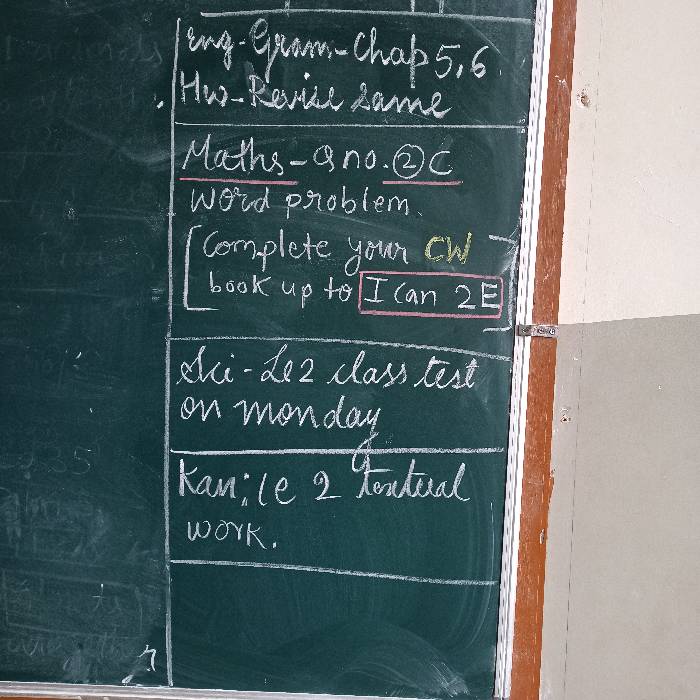 Eng-Gram-Chap 5,6
Hw-Revise same
Maths-Q no. ② C
word problem.
[Complete your CW
book up to I Can 2E]
Sci-Le2 class test
on monday
Kan: le 2 textual
work.